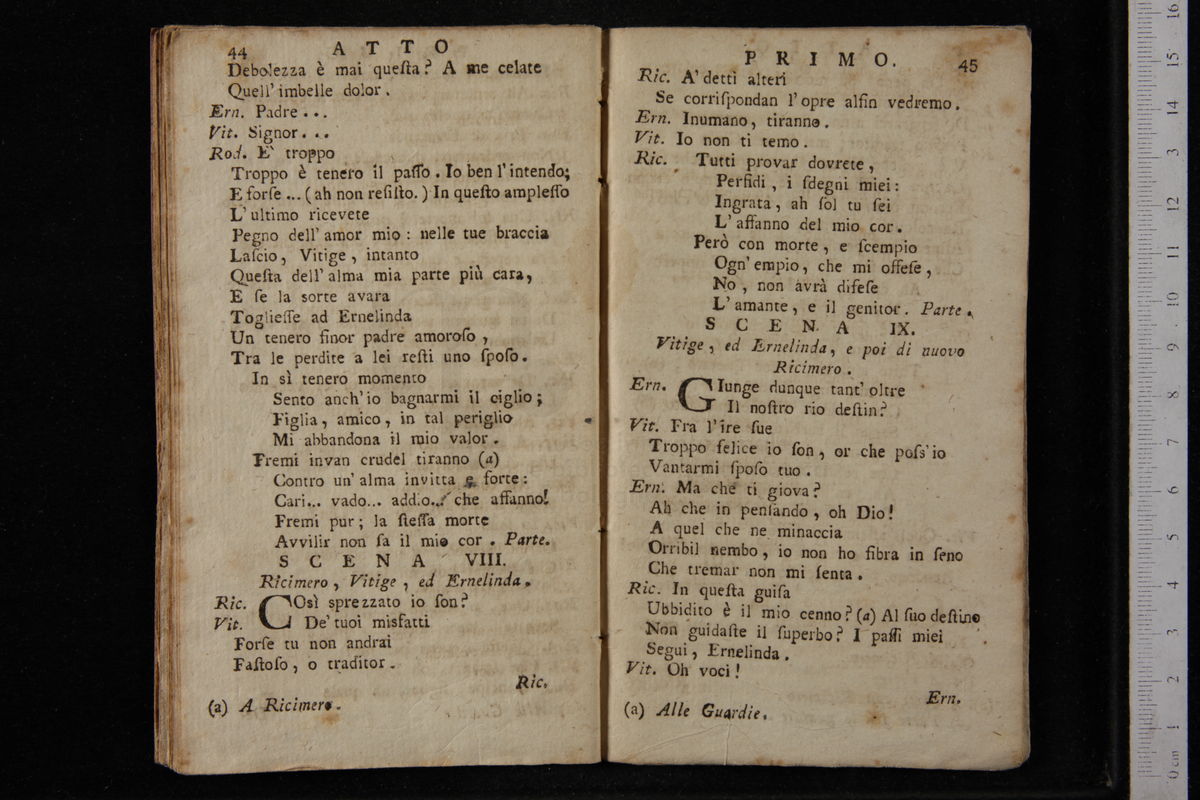 44
A T T O
Debolezza è mai queſta? A me celate
Quell' imbelle dolor.
Ern. Padre...
Vit. Signor...
Rod. E' troppo
Troppo è tenero il paſſo. Io ben l' intendo;
E forſe ... (ah non reſiſto.) In queſto ampleſſo
L' ultimo ricevete
Pegno dell' amor mio: nelle tue braccia
Laſcio, Vitige, intanto
Queſta dell' alma mia parte più cara,
E ſe la sorte avara
Toglieſſe ad Ernelinda
Un tenero finor padre amoroſo,
Tra le perdite a lei reſti uno ſpoſo.
In sì tenero momento
Sento anch' io bagnarmi il ciglio;
Figlia, amico, in tal periglio
Mi abbandona il mio valor.
Fremi invan crudel tiranno (a)
Contro un' alma invitta e forte:
Cari... vado... addio... che affanno!
Fremi pur; la ſteſſa morte
Avvilir non ſa il mio cor. Parte.
S C E N A VIII.
Ricimero, Vitige, ed Ernelinda.
Ric. COsì sprezzato io ſon?
Vit. De' tuoi misfatti
Forſe tu non andrai
Faſtoſo, o traditor.
Ric.
(a) A Ricimero.
P R I M O.
45
Ric. A' detti alteri
Se corriſpondan l' opre alfin vedremo.
Ern. Inumano, tiranno.
Vit. Io non ti temo.
Ric. Tutti provar dovrete,
Perfidi, i ſdegni miei:
Ingrata, ah ſol tu ſei
L' affanno del mio cor.
Però con morte, e ſcempio
Ogn' empio, che mi offeſe,
No, non avrà difeſe
L' amante, e il genitor. Parte.
S C E N A IX.
Vitige, ed Ernelinda, e poi di nuovo
Ricimero.
Ern. GIunge dunque tant' oltre
Il noſtro rio deſtin?
Vit. Fra l' ire ſue
Troppo felice io ſon, or che poſs' io
Vantarmi ſpoſo tuo.
Ern. Ma che ti giova?
Ah che in penſando, oh Dio!
A quel che ne minaccia
Orribil nembo, io non ho fibra in ſeno
Che tremar non mi ſenta.
Ric. In queſta guiſa
Ubbidito è il mio cenno? (a) Al ſuo deſtino
Non guidaſte il ſuperbo? I paſſi miei
Segui, Ernelinda.
Vit. Oh voci!
Ern.
(a) Alle Guardie.
0 cm 1 2 3 4 5 6 7 8 9 10 11 12 3 14 15 16